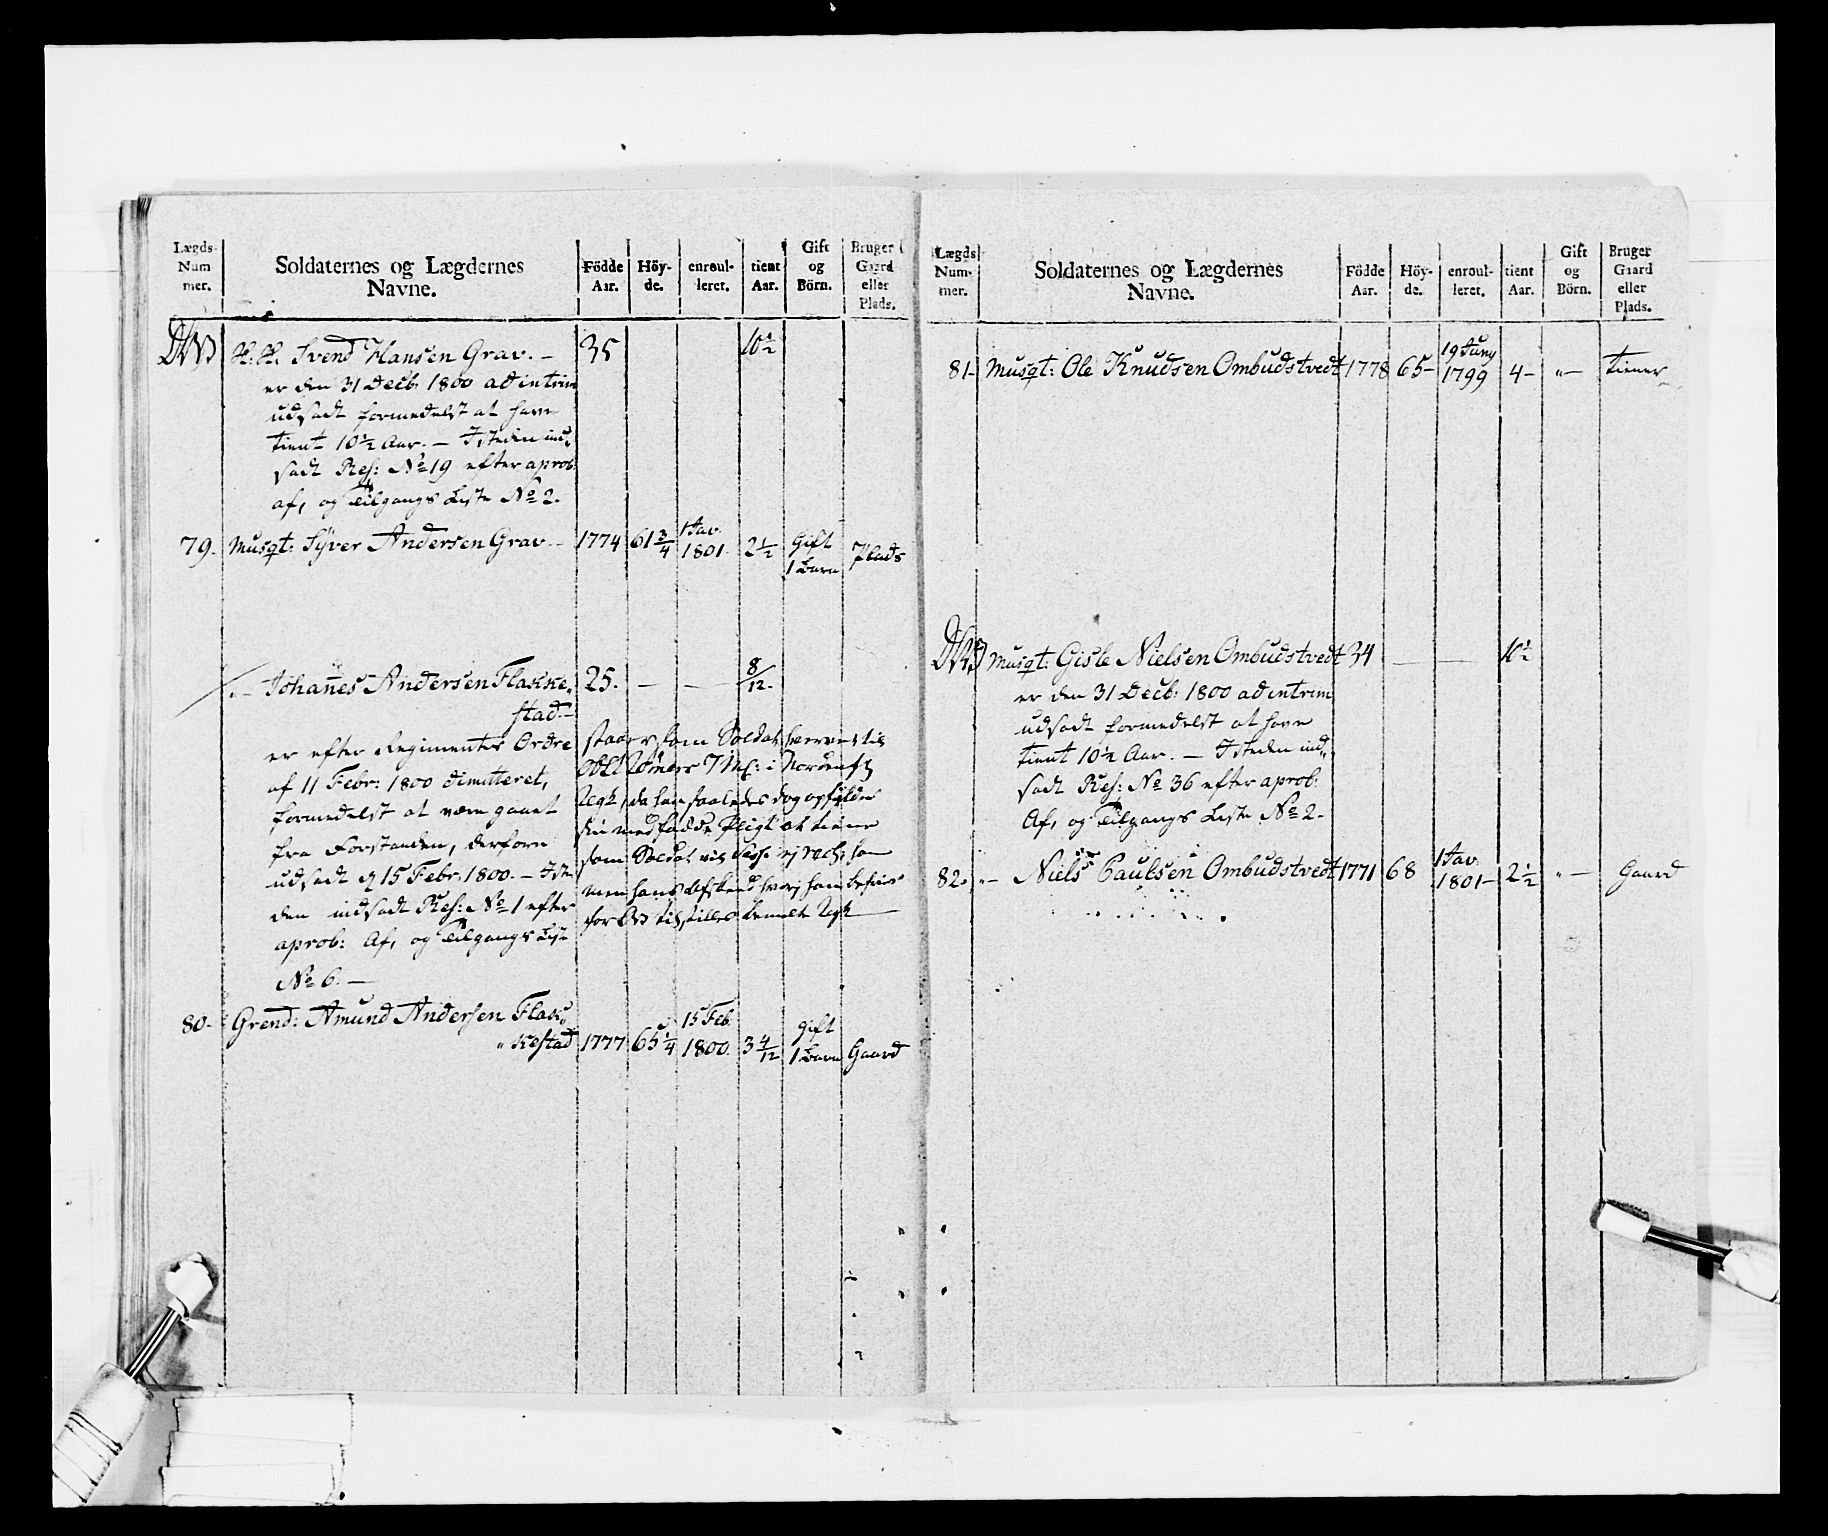 Lægds-
Num
mer.
Soldaternes og Lægdernes
Navne.
Födde
Aar.
Höy-
de.
enroul-
leret.
tient
Aar.
Gift
og
Börn.
Bruger
Gaard
eller
Plads.
Svend Hansen Grav. – 35 10½
er den 31 Decb: 1800 ad intrim
udsadt formedelst at have
tient 10½ Aar. – Isteden ind„
sadt Res: No 19 efter aprob:
af, og Tilgangs Liste No 2.
79. Musqt: Syver Andersen Grav – 1774 61¾ 1 Jav. 1801. 2½ Gift 1 Barn Plads
„– Johannes Andersen Flaske„ 25. – – 8/12.
stad. –
er efter Regimentes Ordre
af 11 Febr: 1800 dimitteret,
formedelst at være gaaet
fra Forstanden, derfore
udsadt d 15 Febr: 1800. – Iste
den indsadt Res: No 1 efter
aprob: Af, og Tilgangs Liste
No 6. –
staaer som Soldat
7 i
da han saaledes dog opfylder
sin medfödde Pligt at tiene
som Soldat
men hans Afskeed
80. Grend: Amund Andersen Flas„
„kestad 1777 65¼ 15 Feb. 1800. 3 4/12 gift 1 Barn Gaard
Lægds
Num-
mer.
Soldaternes og Lægdernes
Navne.
Födde
Aar.
Höy-
de.
enroul-
leret.
tient
Aar.
Gift
og
Börn.
Bruger
Gaard
eller
Plads.
81– Musqt: Ole Knudsen Ombudstvedt 1778 65– 19 Juny 1799 4– „– tiener
Musqt: Gisle Nielsen Ombudstvedt 34 – – 10½
er den 31 Decb: 1800 ad intrim
udsadt formedelst at have
tient 10½ Aar. – Isteden ind„
sadt Res: No 36 efter aprob:
Af, og Tilgangs Liste No 2–
82. „– Niels Paulsen Ombudstvedt 1771 68 1 Jav: 1801– 2½ „– Gaard